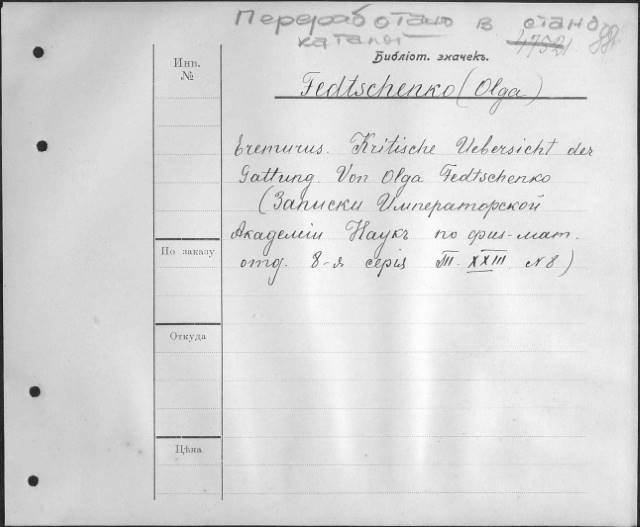 Переработано в станд
каталог 47521 88
Библіот. значекъ.
Инв.
№
Fedtschenko (Olga)
Eremurus. Kritische Uebersicht der
Gattung. Von Olga Fedtschenko
(Записки Императорской
Академіи Наукъ по физ-мат.
По заказу
отд. 8-я серія Т. XXIII № 8)
Откуда
Цѣна